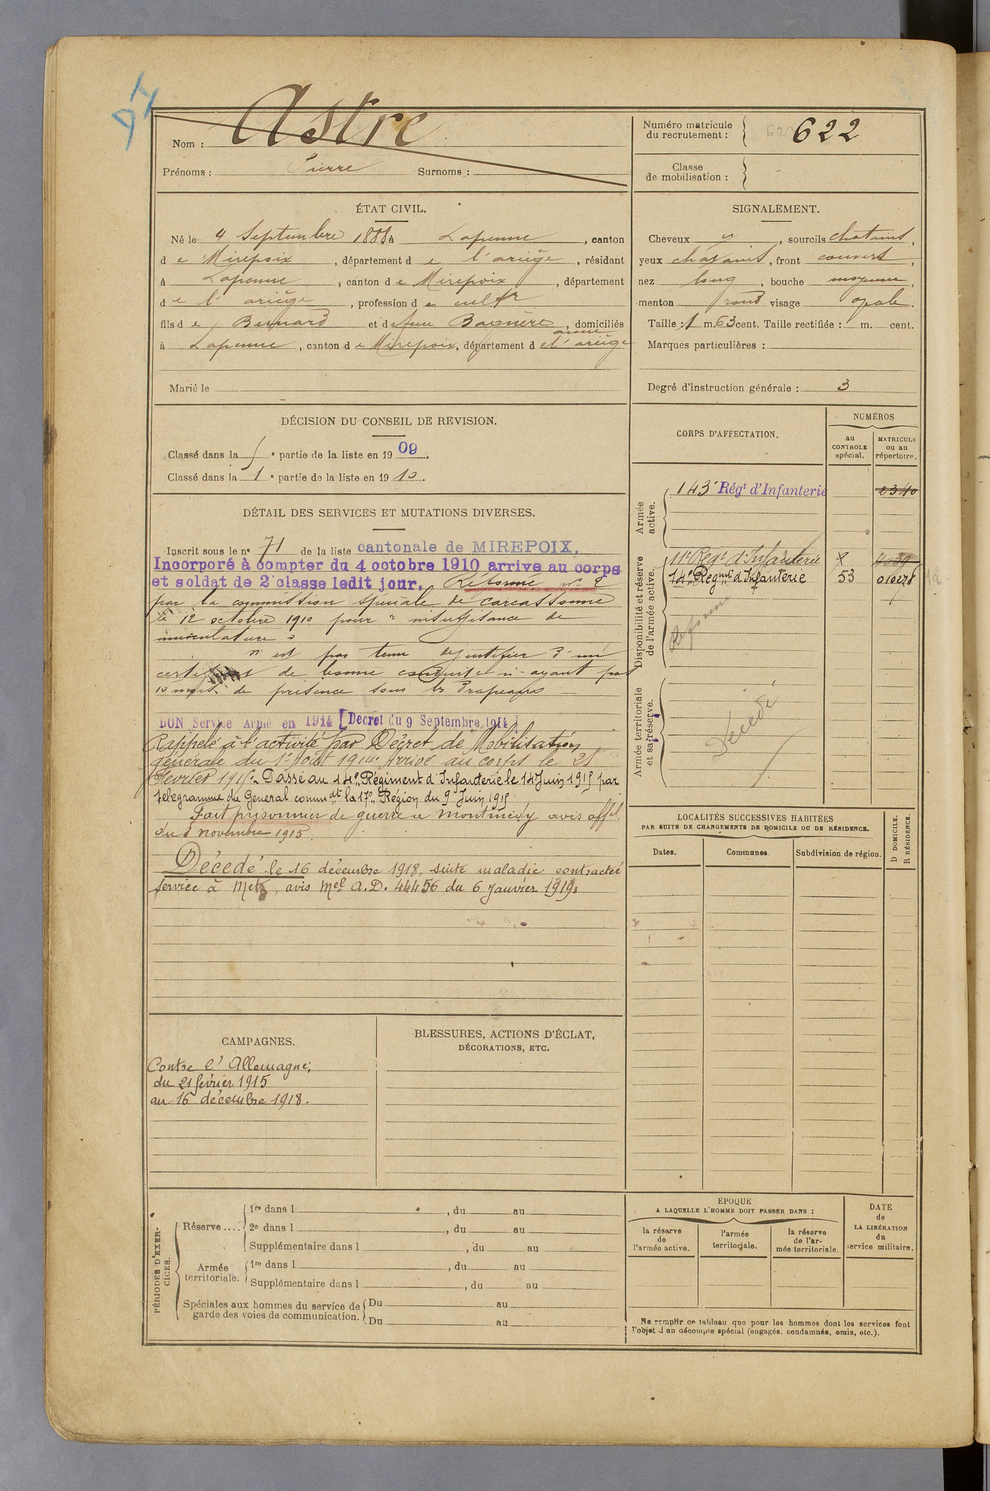 97
Nom : Astre
Prénoms : Pierre Surnoms :
Numéro matricule du recrutement : 622
Classe de mobilisation :
ÉTAT CIVIL.
Né le 4 Septembre 188 à Lapenne, canton
d e Mirepoix, département d e l'ariège, résidant
à Lapenne, canton d e Mirepoix, département
d e l'ariège, profession d e cultr
fils d e Bernard et de feue Baquère, domiciliés
anne
à Lapenne, canton d e Mirepoix, département d e l'ariège
Marié le
SIGNALEMENT.
Cheveux y, sourcils chatains,
yeux chatains, front couvert,
nez long, bouche moyenne,
menton rond visage ovale.
Taille : 1 m. 63 cent. Taille rectifiée : m. cent.
Marques particulières :
Degré d'instruction générale : 3
DÉCISION DU CONSEIL DE REVISION.
Classé dans la partie de la liste en 1909.
Classé dans la 1e partie de la liste en 1910.
DÉTAIL DES SERVICES ET MUTATIONS DIVERSES.
Inscrit sous le n° 71 de la liste cantonale de MIREPOIX.
Incorporé à compter du 4 octobre 1910 arrive au corps
et soldat de 2e classe ledit jour. Réformé n° 2
par la commission spéciale de Carcassonne
le 12 octobre 1910 pour "insuffisance de
musculature"
n'est pas tenu de justifier d'un
certificat de bonne conduite n'ayant pas
10 mois de présence sous les Drapeaux
BON Service Armé en 1914 [Decret du 9 Septembre 1914]
Rappelé à l'activité par Décret de Mobilisation
générale du 1er Août 1914. Arrivé au corps le 21
février 1915. Passé au 14e Régiment d'Infanterie le 14 Juin 1915 par
telegramme du General commdt la 17e Région du 9 Juin 1915
Fait prisonnier de guerre a montmédy avis offel
du 8 novembre 1915
Décédé le 16 décembre 1918, suite maladie contractée
service à Metz, avis Mel A.D. 44456 du 6 Janvier 1919.
CORPS D'AFFECTATION.
NUMÉROS
au CONTROLE spécial.
MATRICULE ou au répertoire.
Armée active.
143e Régt d'Infanterie 2340
Disponibilité et réserve de l'armée active.
11e Régt d'Infanterie
14e Régimt d'Infanterie 53
Réformé
Armée territoriale et sa réserve.
Décédé
LOCALITÉS SUCCESSIVES HABITÉES
PAR SUITE DE CHANGEMENTS DE DOMICILE OU DE RÉSIDENCE.
Dates. Communes. Subdivision de région.
D DOMICILE.
R RÉSIDENCE.
CAMPAGNES.
Contre l'Allemagne;
du 21 février 1915
au 16 décembre 1918.
BLESSURES, ACTIONS D'ÉCLAT,
DÉCORATIONS, ETC.
PÉRIODES D'EXERCICES.
Réserve ....
1re dans l , du au
2e dans l , du au
Supplémentaire dans l , du au
Armée territoriale.
1re dans l , du au
Supplémentaire dans l , du au
Spéciales aux hommes du service de garde des voies de communication.
Du au
Du au
EPOQUE
A LAQUELLE L'HOMME DOIT PASSER DANS :
la réserve de l'armée active.
l'armée territoriale.
la réserve de l'armée territoriale.
DATE de LA LIBÉRATION du service militaire.
Ne remplir ce tableau que pour les hommes dont les services font
l'objet d'un décompte spécial (engagés, condamnés, omis, etc.).